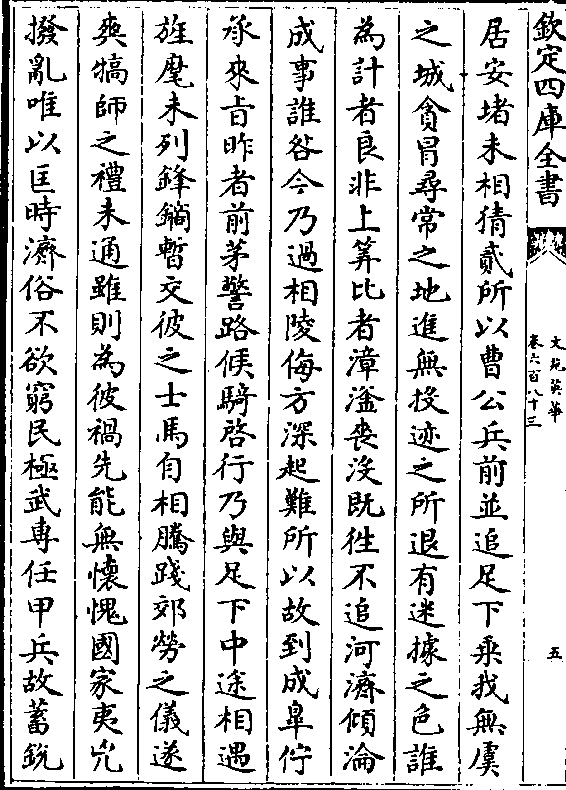 欽定四庫全書
文苑英華
卷六百八十三
五
居安堵未相猜貳所以曹公兵前並追足下乗我無虞
之城貪冒尋常之地進無投迹之所退有迷據之色誰
為計者良非上筭比者漳滏喪没既徃不追河濟傾淪
成事誰咎今乃過相陵侮方深起難所以故到成臯佇
承來㫖昨者前茅警路候騎啓行乃與足下中途相遇
旌麾未列鋒鏑暫交彼之士馬自相騰踐郊勞之儀遂
爽犒師之禮未通雖則為彼禍先能無懷愧國家夷兇
撥亂唯以匡時濟俗不欲窮民極武専任甲兵故蓄鋭